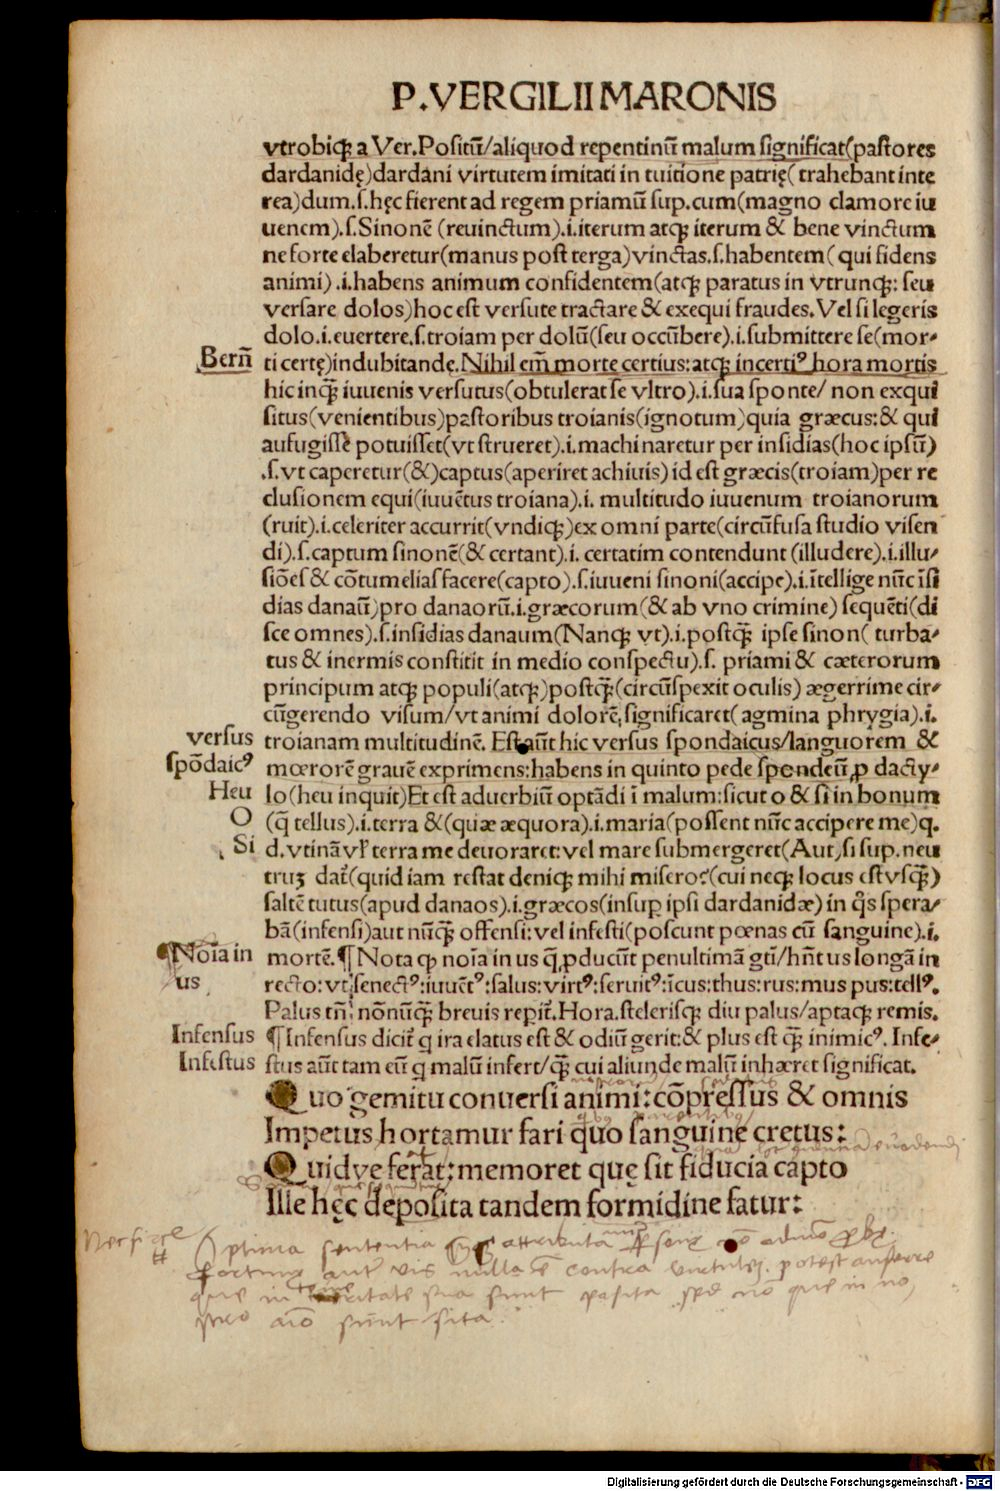 P.VERGILII MARONIS
vtrobiq; a Ver.Positū/aliquod repentinū malum significat(pastores
dardanidę)dardani virtutem imitati in tuitione patrię( trahebant inte
rea)dum.s.hęc fierent ad regem priamū sup.cum(magno clamore iu
uenem).s.Sinonē (reuinctum).i.iterum atq; iterum & bene vinctum
ne forte elaberetur(manus post terga)vinctas.s.habentem( qui fidens
animi) .i.habens animum confidentem(atq; paratus in vtrunq;: seu
versare dolos)hoc est versute tractare & exequi fraudes.Vel si legeris
dolo.i.euertere.s.troiam per dolū(seu occūbere).i.submittere se(mor-
Bern̄ ti certę)indubitandę.Nihil em̄ morte certius:atq; incertiꝰ hora mortis
hic inq̄; iuuenis versutus(obtulerat se vltro).i.sua sponte/ non exqui
situs(venientibus)pastoribus troianis(ignotum)quia græcus:& qui
aufugisse potuisset(vt strueret).i.machinaretur per insidias(hoc ipsū)
.s.vt caperetur(&)captus(aperiret achiuis) id est græcis(troiam)per re
clusionem equi(iuuētus troiana).i. multitudo iuuenum troianorum
(ruit).i.celeriter accurrit(vndiq;)ex omni parte(circūfusa studio visen
di).s.captum sinonē(& certant).i. certatim contendunt (illudere).i.illu-
siōes & cōtumelias facere(capto).s.iuueni sinoni(accipe).i.ītellige nūc īsi
dias danaū)pro danaorū.i.græcorum(& ab vno crimine) sequēti(di
sce omnes).s.insidias danaum(Nanq; vt).i.postq̄; ipse sinon( turba-
tus & inermis constitit in medio conspectu).s. priami & cæterorum
principum atq; populi(atq;)postq̄;(circūspexit oculis) ægerrime cir-
cūgerendo visum/vt animi dolorē significaret( agmina phrygia).i.
versus troianam multitudinē. Est aūt hic versus spondaicus/languorem &
spōdaicꝰ mœrorē grauē exprimens:habens in quinto pede spondeū ꝓ dacty-
Heu lo(heu inquit)Et est aduerbiū optādi ī malum:sicut o & si in bonum
O (q̄ tellus).i.terra &(quæ æquora).i.maria(possent nūc accipere me)q.
Si d.vtinā vł terra me deuoraret:vel mare submergeret(Aut,si sup.neu
truȝ dat̄(quid iam restat deniq; mihi misero?(cui neq; locus est vsq̄;)
saltē tutus(apud danaos).i.græcos(insuꝑ ipsi dardanidæ) in q̄s spera-
bā(infensi)aut nūq̄; offensi:vel infesti(poscunt pœnas cū sanguine).i.
Noīa in mortē.¶ Nota ꝙ noīa in us q̄ ꝓducūt penultimā gt̄i/hn̄t us longā in
us recto:vt senectꝰ:iuuētꝰ:salus:virtꝰ:seruitꝰ:īcus:thus:rus:mus pus:tellꝰ.
Palus tn̄ nōnūq̄; breuis repit̄.Hora.sterilisq; diu palus/aptaq; remis.
Infensus ¶ Infensus dicit̄ q ira elatus est & odiū gerit:& plus est q̄; inimicꝰ. Infe-
Infestus stus aūt tam eū q malū infert/q̄; cui aliunde malū inhæret significat.
Quo gemitu conuersi animi:cōpressus & omnis
Impetus hortamur fari quo sanguine cretus:
Quidve ferat:memoret quę sit fiducia capto
Ille hęc deposita tandem formidine fatur:
Optima sententia
Fortunę aut vis nulla
sunt posita
sunt sita
Digitalisierung gefördert durch die Deutsche Forschungsgemeinschaft - DFG